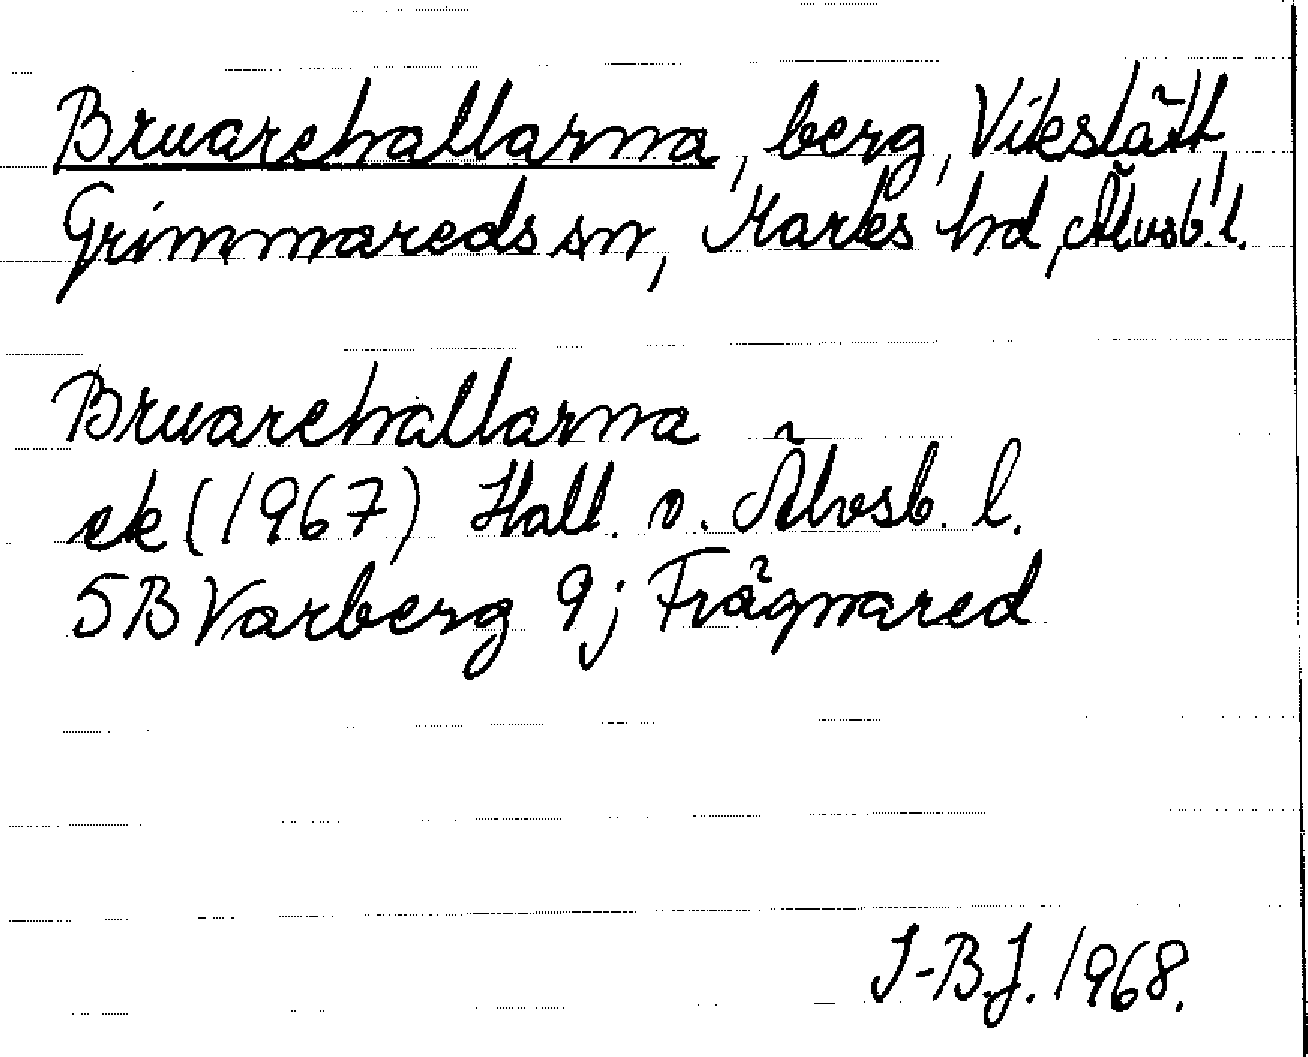 Bruarehallarna, berg, Vikslätt,
Grimmareds sn, Marks hd, Älvsb. l.
Bruarehallarna
ek (1967) Hall. o. Älvsb. l.
5B Varberg 9j Frägnared
I-B.J. 1968.